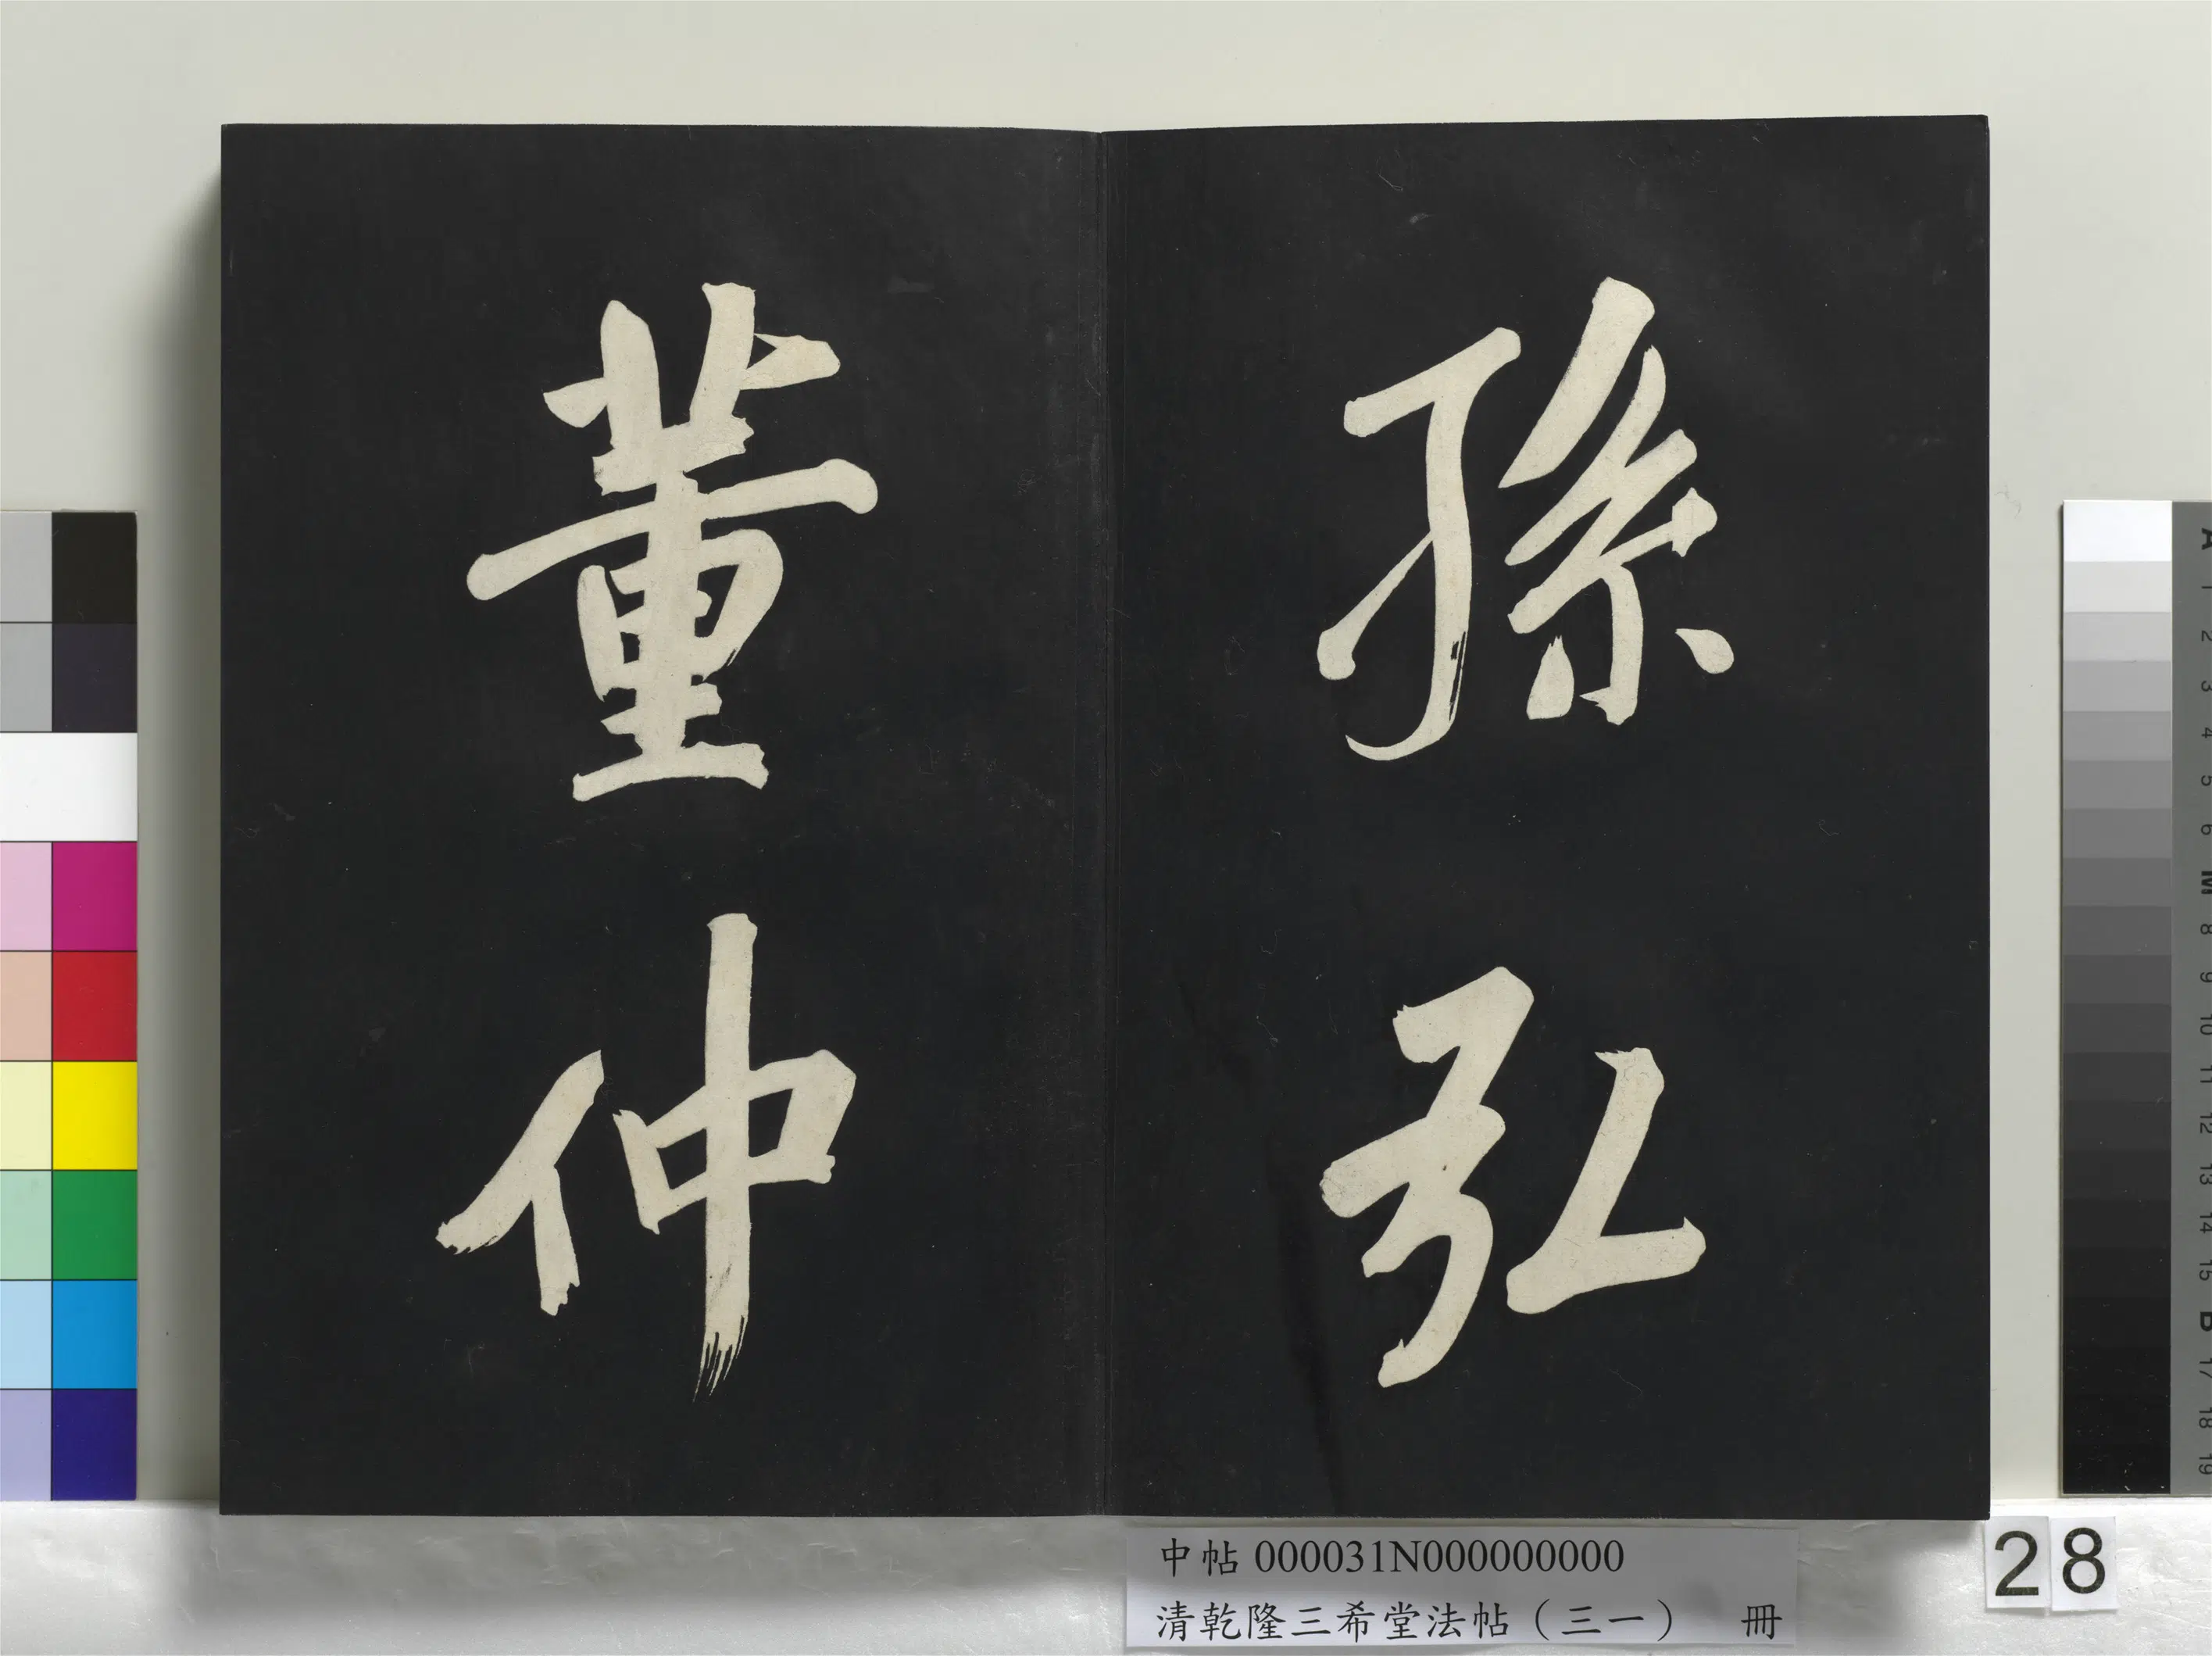 孫弘
董仲
中帖 000031N000000000
清乾隆三希堂法帖（三一） 冊
28
A
1
2
3
4
5
6
M
8
9
10
11
12
13
14
15
B
17
18
19